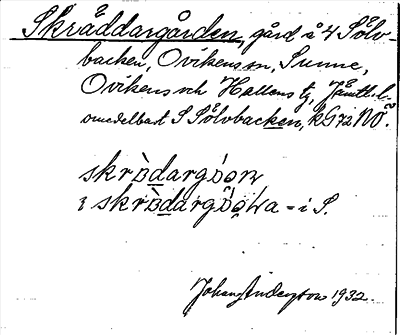 Skräddargården, gård å 4 Sölv-
backen, Ovikens sn, Sunne,
Ovikens och Hallens tg, Jämtl. l.
omedelbart S Sölvbacken, kG72NO.
skròdargó̤o̤n
i skròdargó̤o̤Ha = i S.
1932.